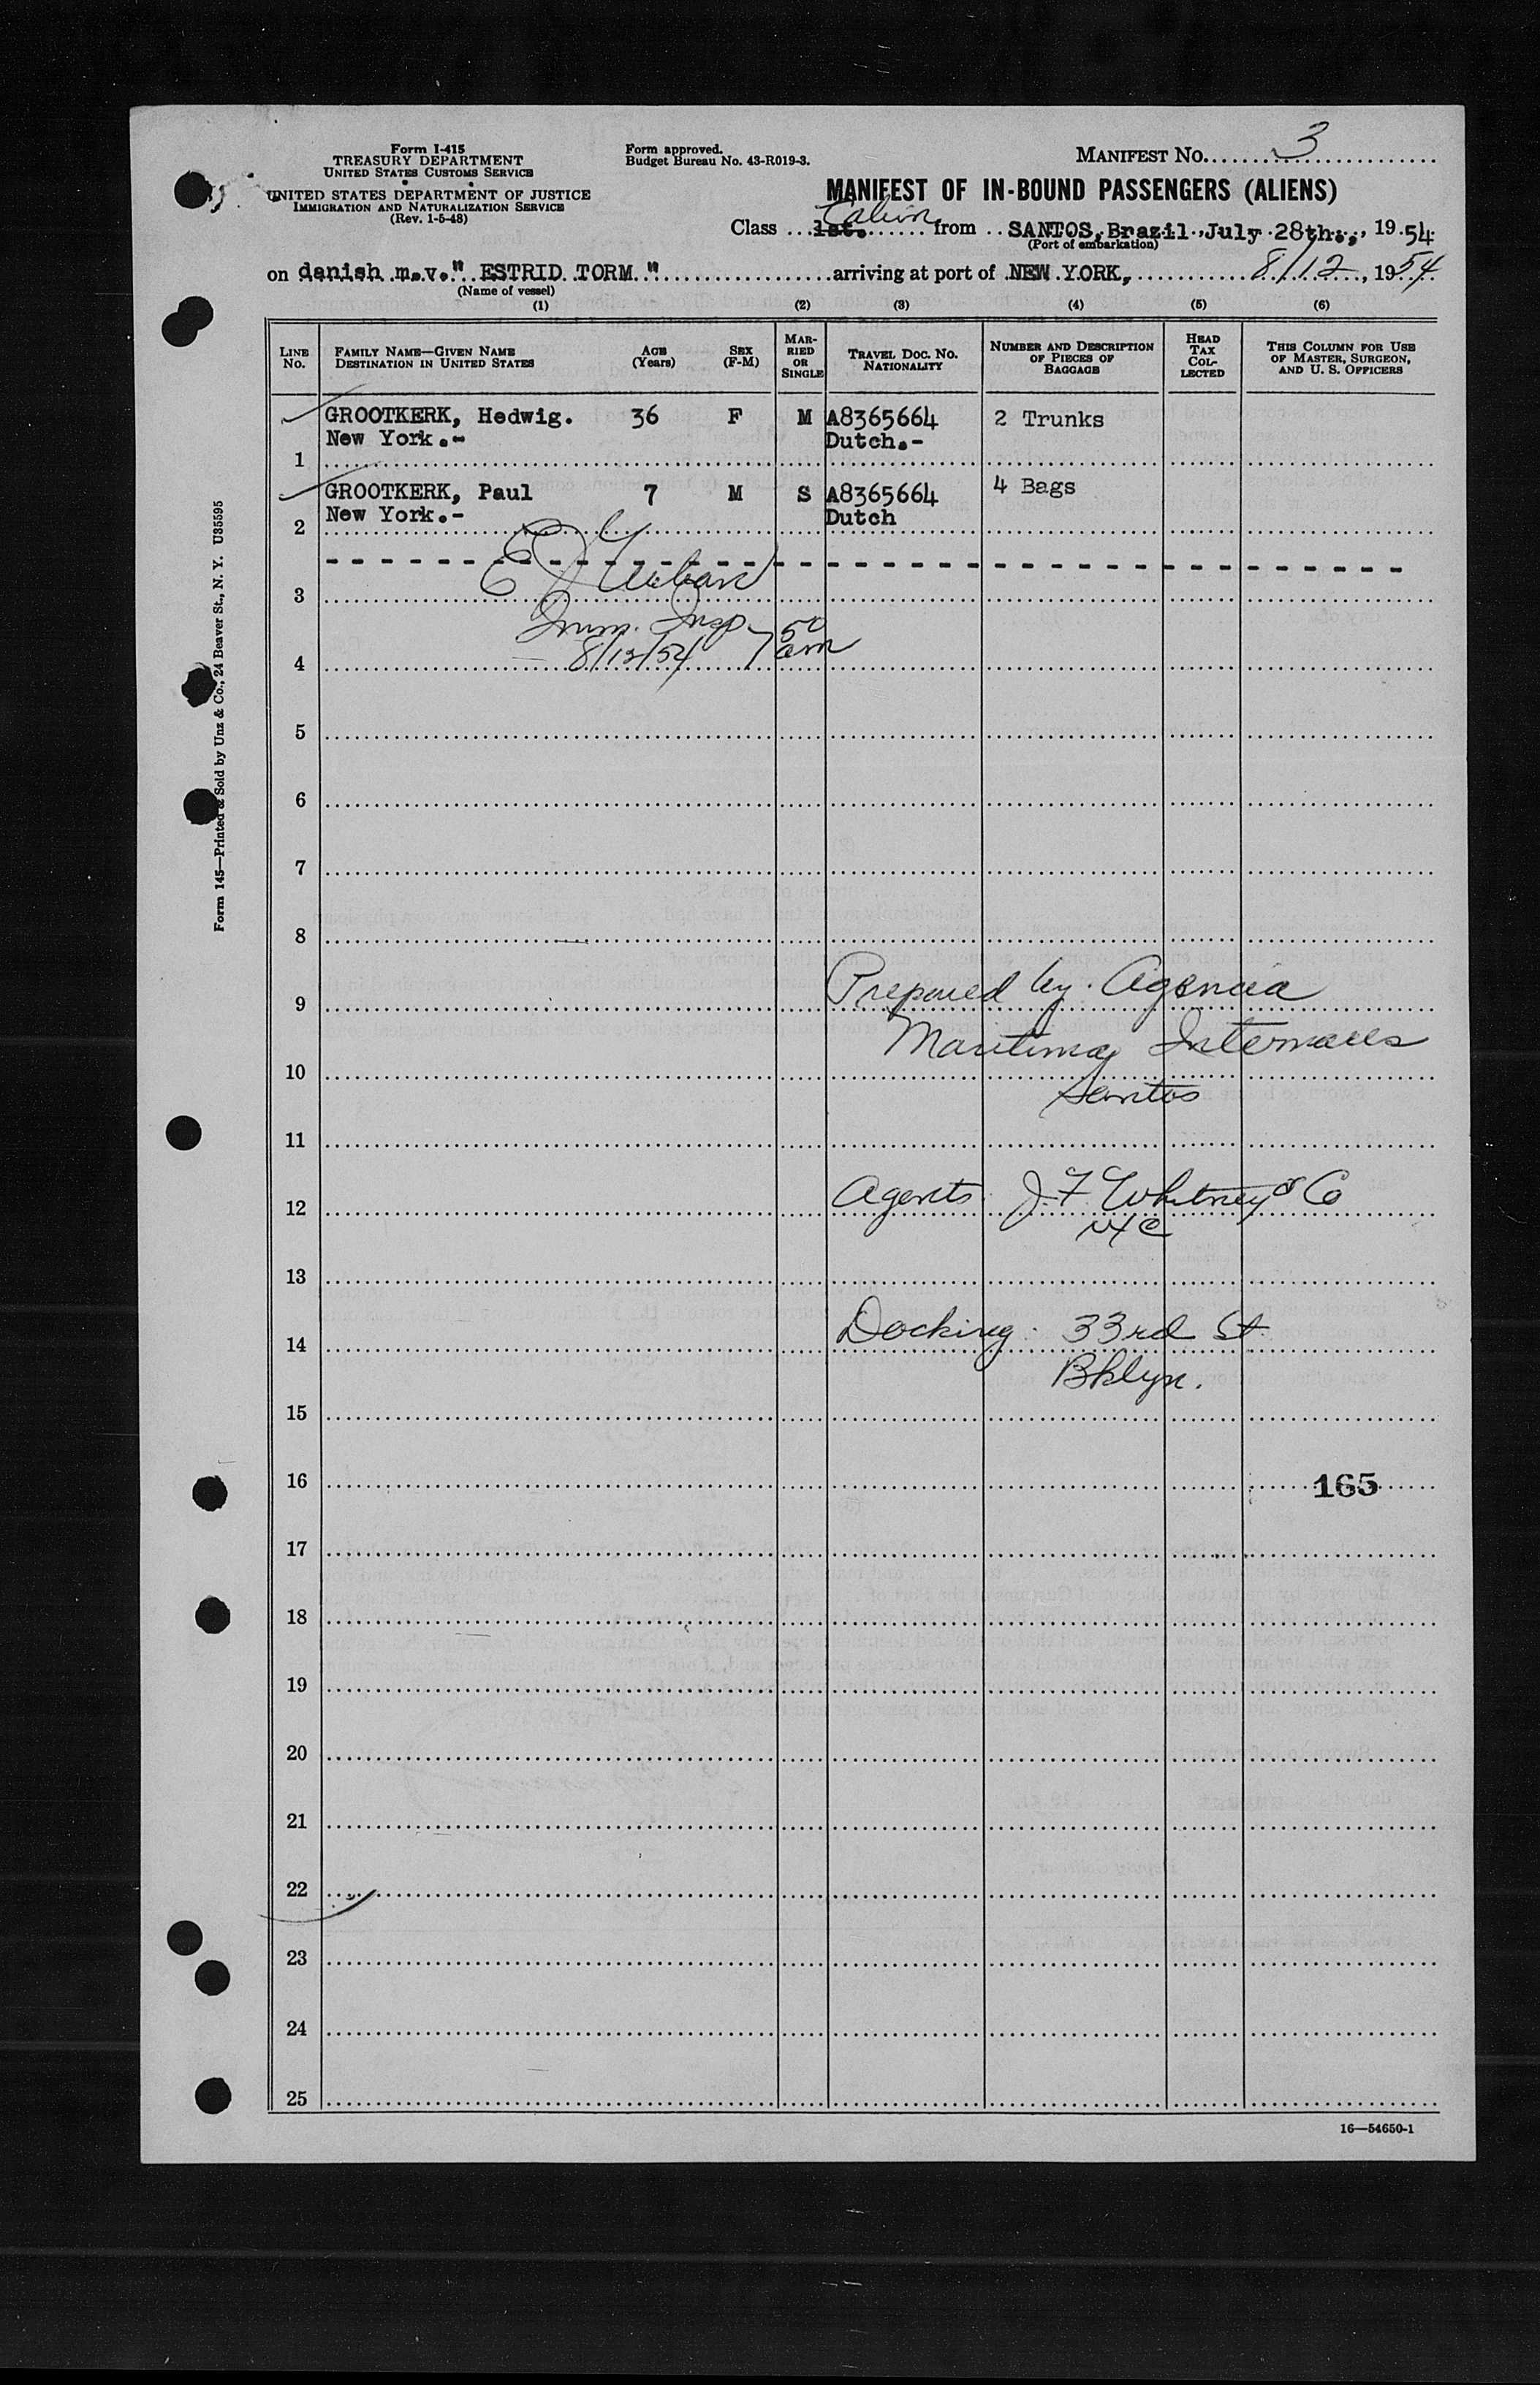 Form I-415
TREASURY DEPARTMENT
UNITED STATES CUSTOMS SERVICE
UNITED STATES DEPARTMENT OF JUSTICE
IMMIGRATION AND NATURALIZATION SERVICE
(Rev. 1-5-48)
Form approved.
Budget Bureau No. 43-R019-3.
MANIFEST NO. 3
MANIFEST OF IN-BOUND PASSENGERS (ALIENS)
Cabin
Class 1st. from SANTOS, Brazil, July 28th., 1954
(Port of embarkation)
on danish m.v." ESTRID TORM " arriving at port of NEW YORK, 8/12, 1954
(Name of vessel)
(1) (2) (3) (4) (5) (6)
LINE NO. FAMILY NAME—GIVEN NAME DESTINATION IN UNITED STATES AGE (Years) SEX (F-M) MARRIED OR SINGLE TRAVEL DOC. NO. NATIONALITY NUMBER AND DESCRIPTION OF PIECES OF BAGGAGE HEAD TAX COLLECTED THIS COLUMN FOR USE OF MASTER, SURGEON, AND U. S. OFFICERS
GROOTKERK, Hedwig. 36 F M A8365664 2 Trunks
New York.- Dutch.-
1
GROOTKERK, Paul 7 M S A8365664 4 Bags
New York.- Dutch
2
3
Imm. Insp.
8/12/54 7 50 am
4
5
6
7
8
Prepared by. Agencia
9
Maritima
10
Santos
11
Agents. J. F. Whitney & Co
12
NYC
13
Docking. 33rd St.
14
Bklyn.
15
16 165
17
18
19
20
21
22
23
24
25
16—54650-1
Form 145—Printed & Sold by Unz & Co., 24 Beaver St., N. Y. U35595